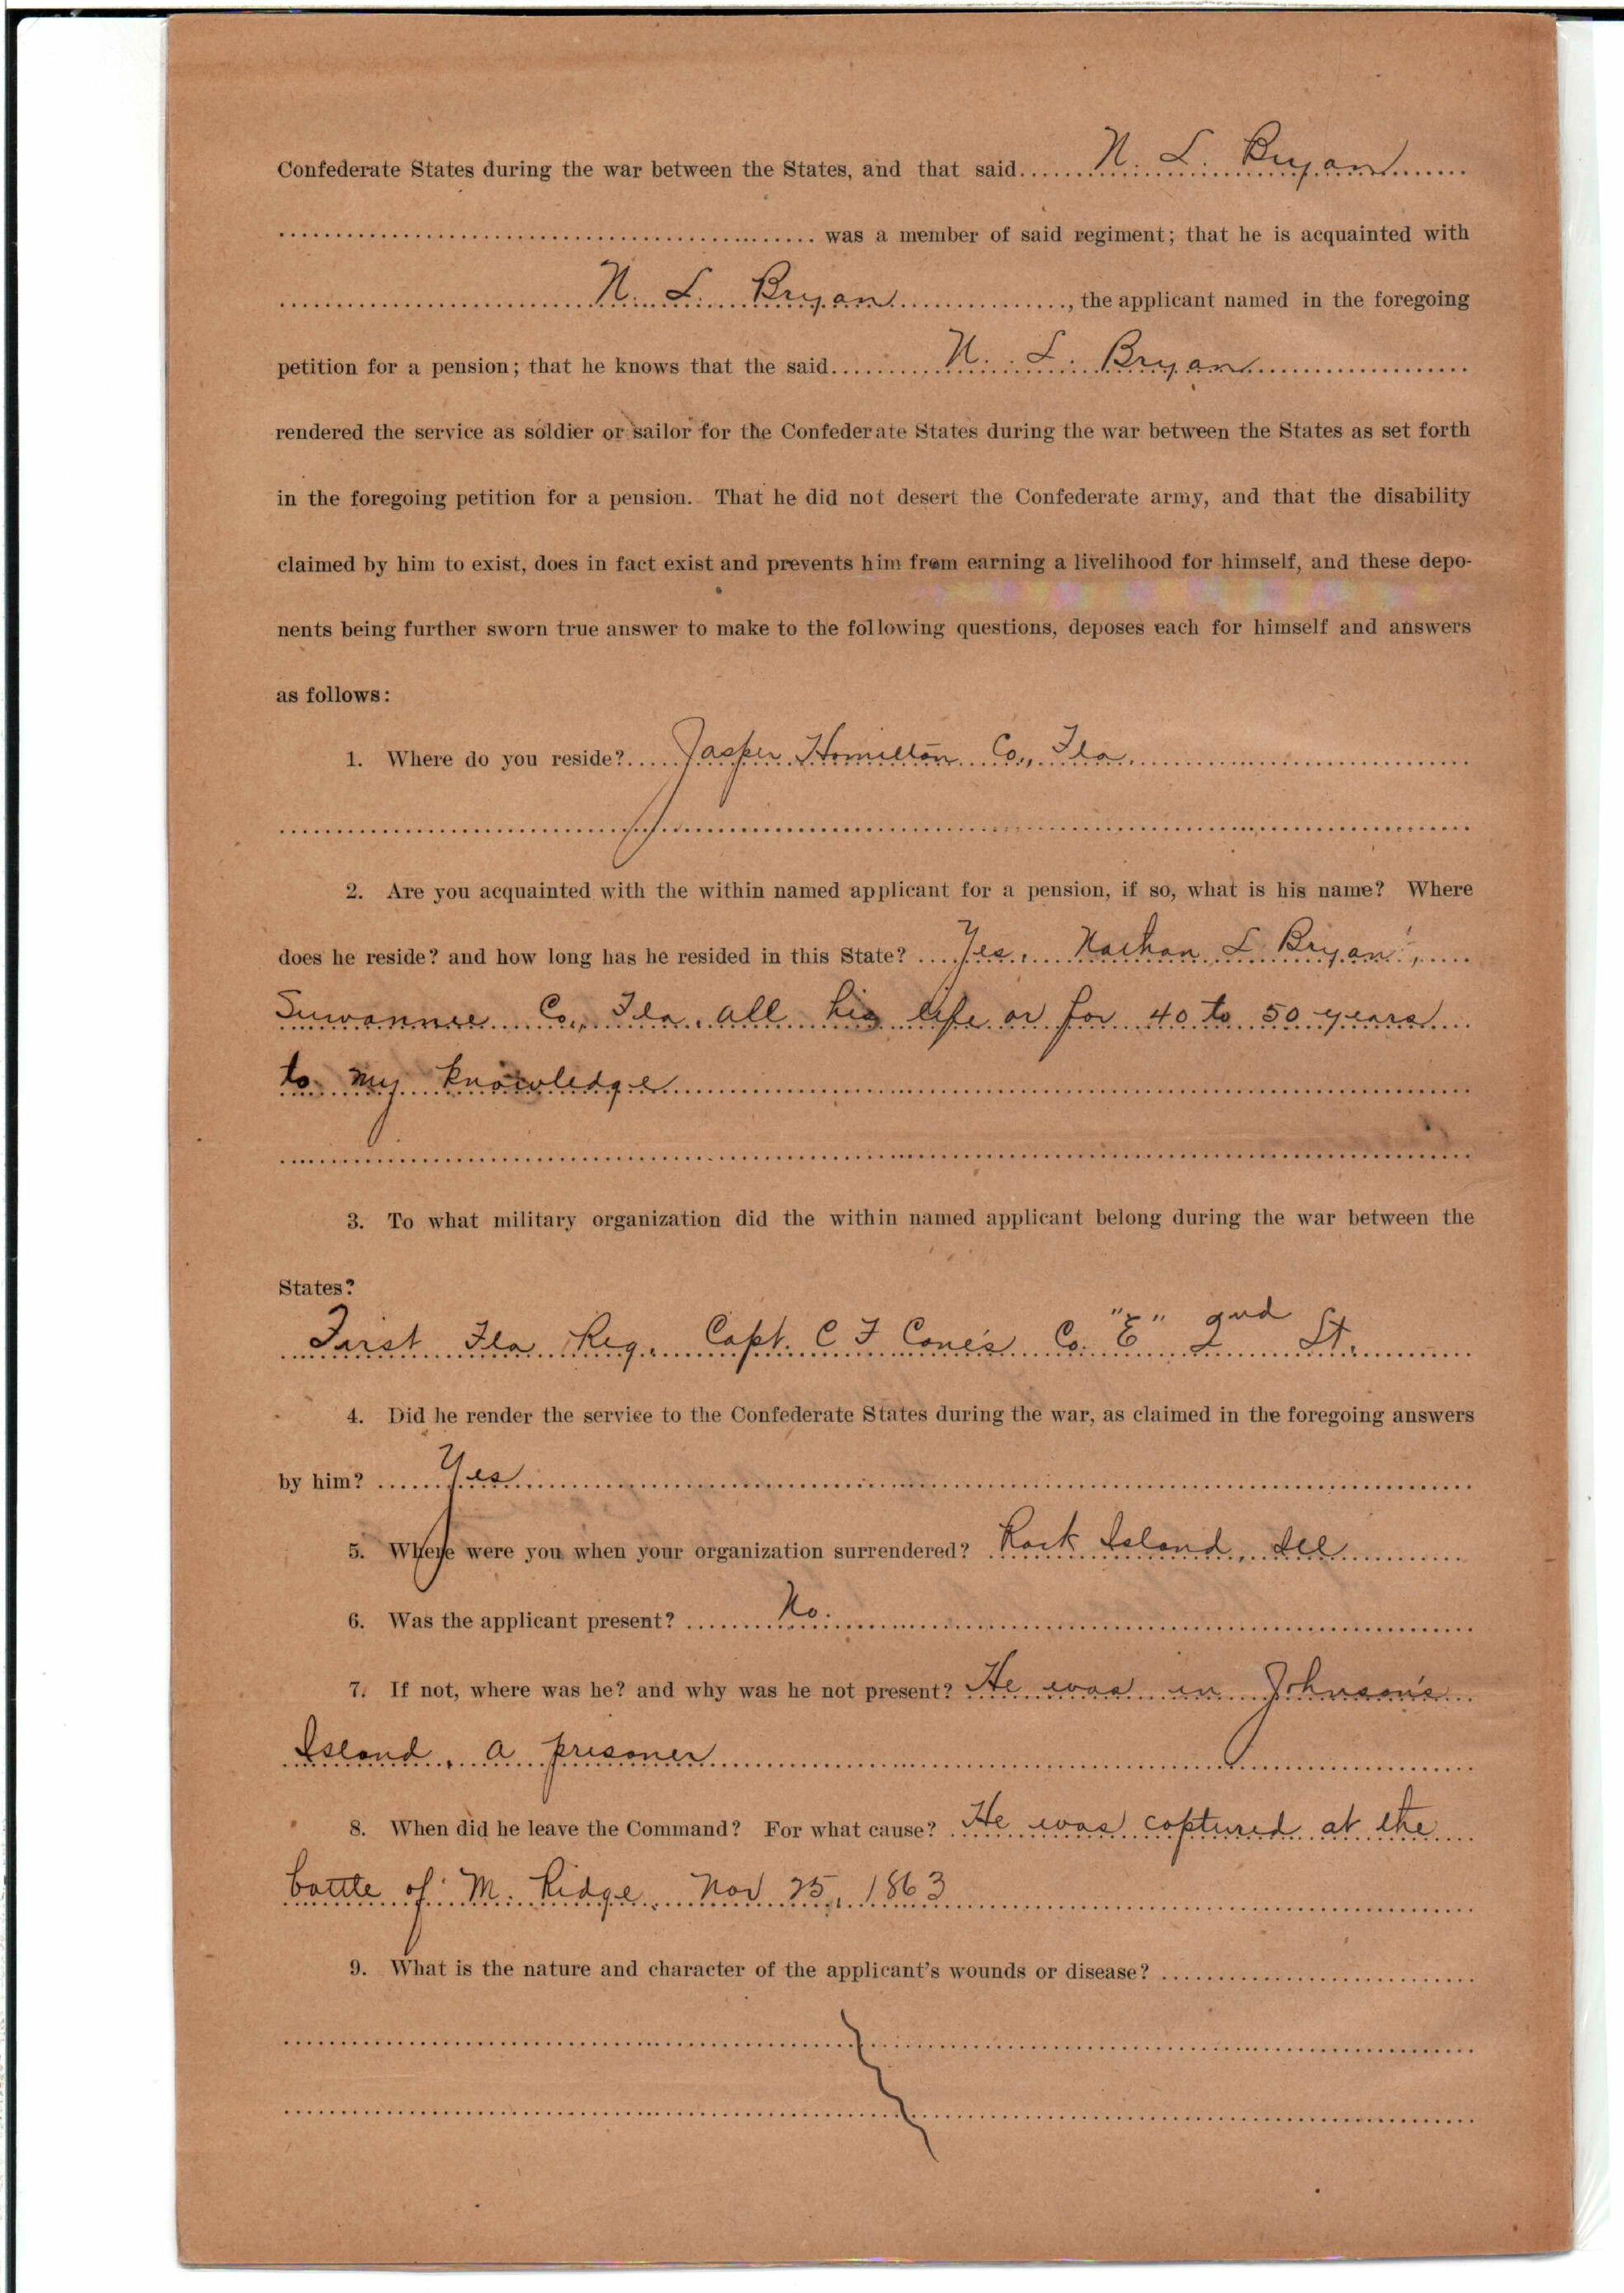 Confederate States during the war between the States, and that said N. L. Bryan
was a member of said regiment; that he is acquainted with
N. L. Bryan, the applicant named in the foregoing
petition for a pension; that he knows that the said N. L. Bryan
rendered the service as soldier or sailor for the Confederate States during the war between the States as set forth
in the foregoing petition for a pension. That he did not desert the Confederate army, and that the disability
claimed by him to exist, does in fact exist and prevents him from earning a livelihood for himself, and these depo-
nents being further sworn true answer to make to the following questions, deposes each for himself and answers
as follows:
1. Where do you reside? Jasper Hamilton Co., Fla.
2. Are you acquainted with the within named applicant for a pension, if so, what is his name? Where
does he reside? and how long has he resided in this State? Yes, Nathan L Bryan,
Suwannee Co., Fla. all his life or for 40 to 50 years
to my knowledge
3. To what military organization did the within named applicant belong during the war between the
States?
First Fla Reg. Capt. C F Cone's Co. "E" 2nd Lt.
4. Did he render the service to the Confederate States during the war, as claimed in the foregoing answers
by him? Yes
5. Where were you when your organization surrendered? Rock Island, Ill
6. Was the applicant present? No.
7. If not, where was he? and why was he not present? He was in Johnson's
Island, a prisoner
8. When did he leave the Command? For what cause? He was captured at the
battle of M. Ridge, Nov 25, 1863
9. What is the nature and character of the applicant's wounds or disease?